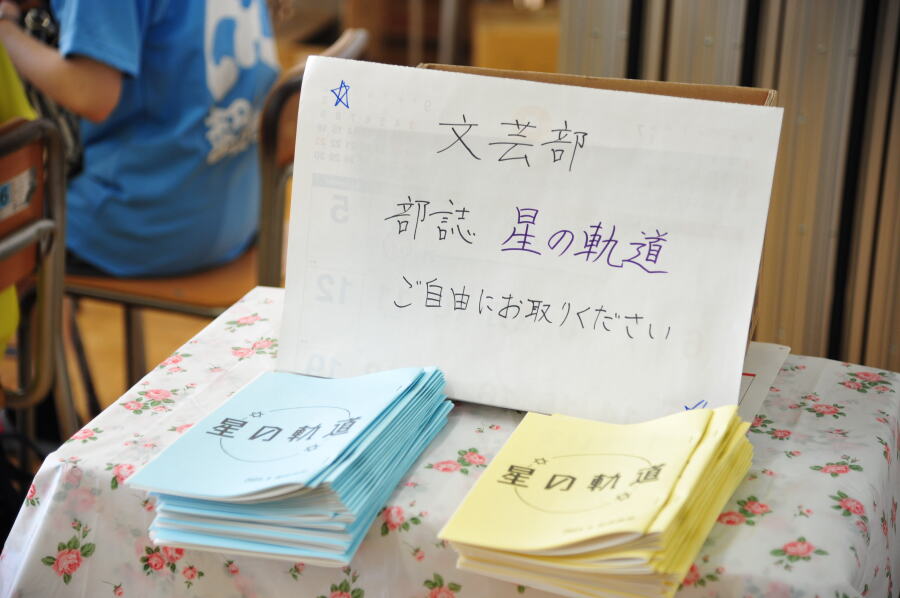 文芸部
部誌 星の軌道
ご自由にお取りください
星の軌道
星の軌道